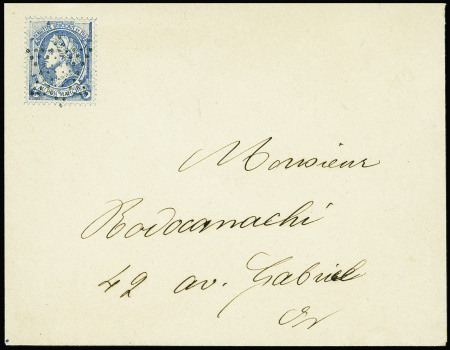 Monsieur
Rodocanachi
42 av. Gabriel